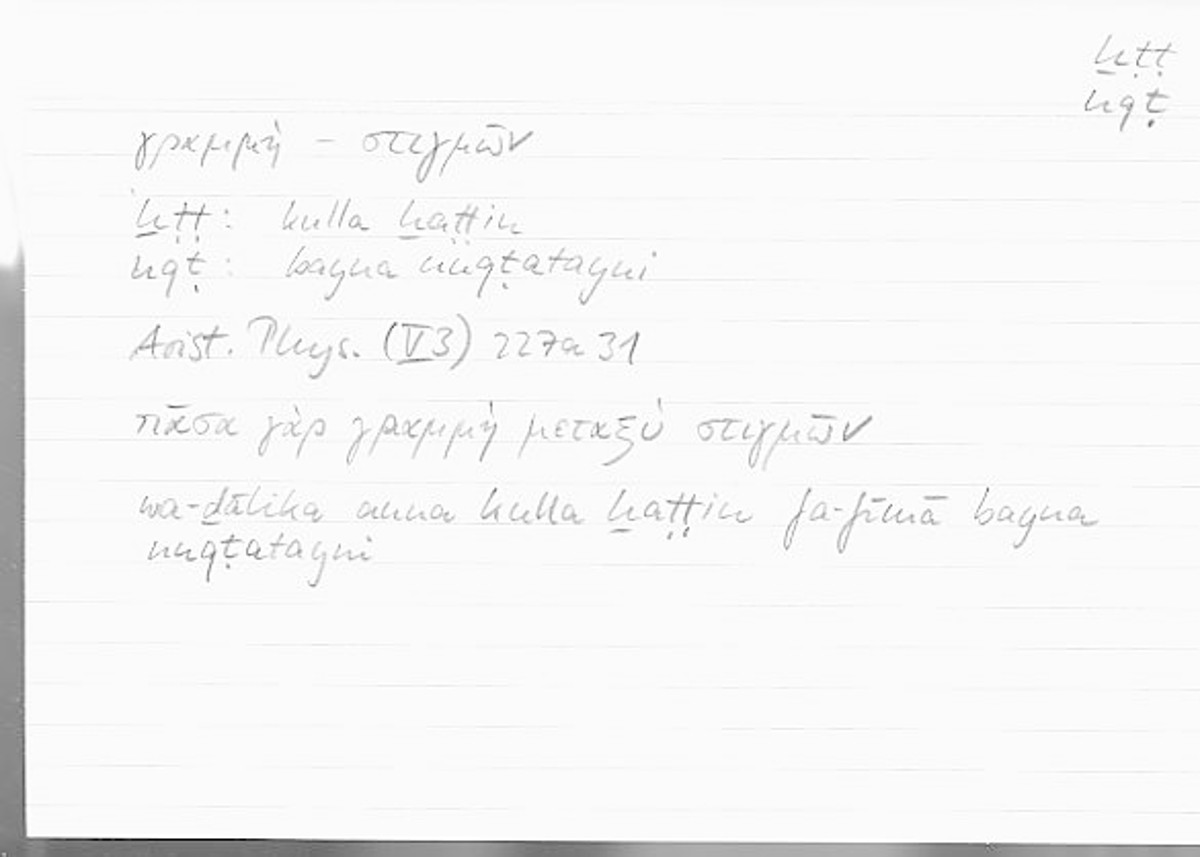 ḫṭṭ
nqṭ
γραμμή – στιγμῶν
ḫṭṭ: kulla ḫaṭṭin
nqṭ: bayna nuqṭatayni
Arist. Phys. (V3) 227a 31
πᾶσα γὰρ γραμμὴ μεταξὺ στιγμῶν
wa-ḏālika anna kulla ḫaṭṭin fa-fīmā bayna
nuqṭatayni